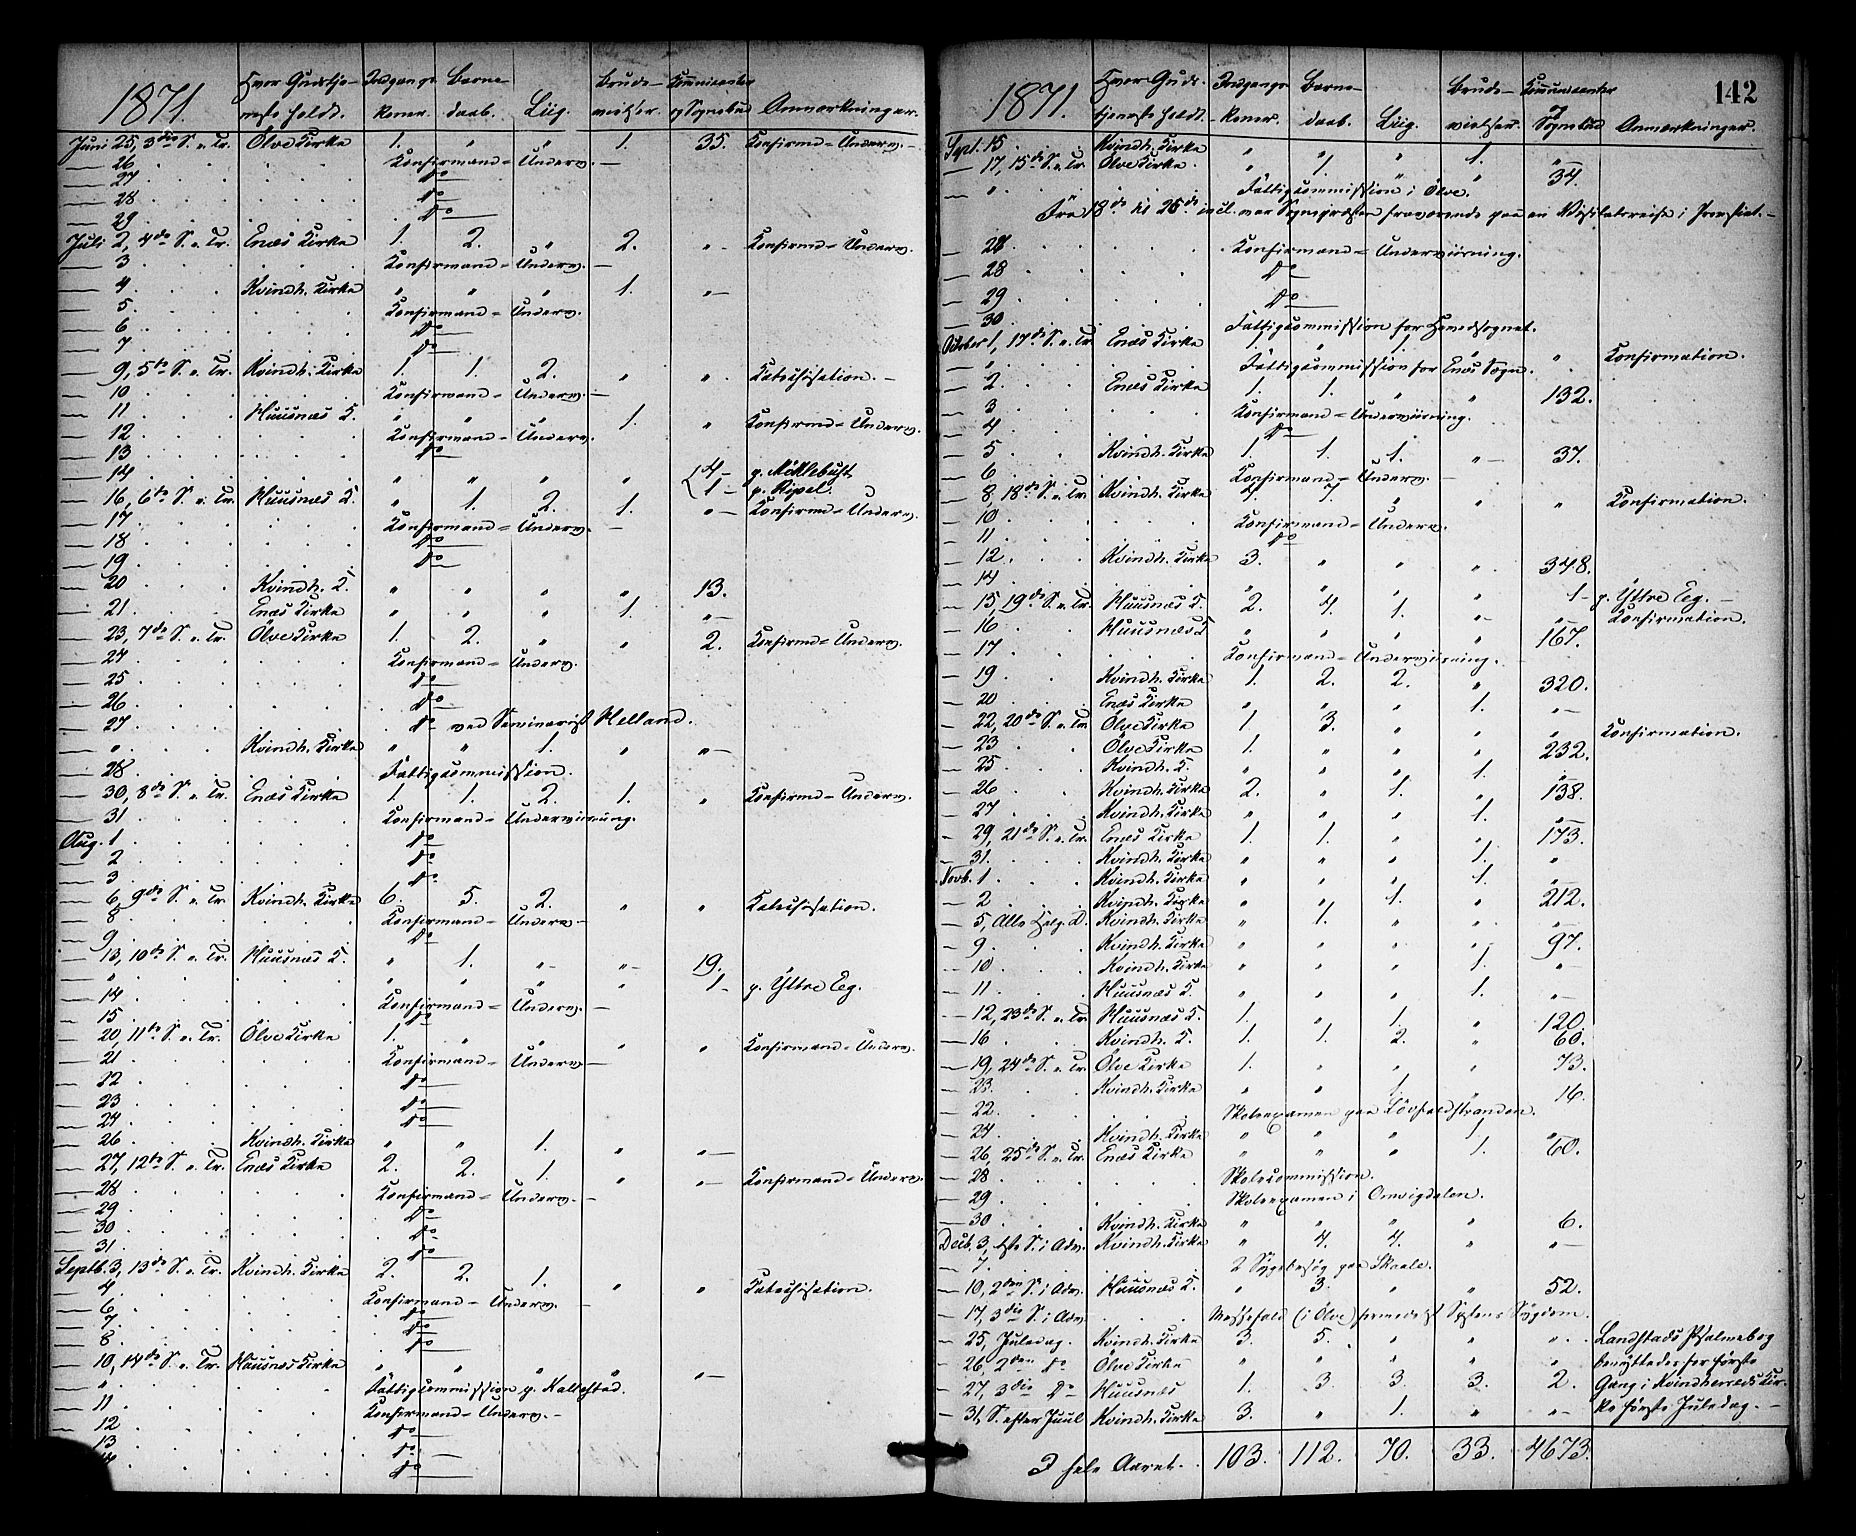 1871. Hvor Gudstje- Indgangs Barne Brude- Communicanter
neste holdt. koner. daab. Liig. vielser. og Sognebud Anmærkninger.
Juni 25, 3die S. e. Tr. Ölve Kirke 1. " " 1. 35. Confirmd= Underv. –
— 26 . . . Confirmand= Underv. –
— 27 . . . Do
— 28 . . . Do
— 29 . . . Do
Juli 2, 4de S. e. Tr. Enæs Kirke 1. 2. " 2. " – Confirmd= Underv.
— 3 . . . Confirmand= Underv. –
— 4 . . . Kvindh. Kirke " " " 1. " –
— 5 . . . Confirmand= Underv.
— 6 . . . Do
— 7 . . . Do
— 9, 5te S. e. Tr. Kvindh. Kirke 1. 1. 2. " " Catechisation. –
— 10 . . . Confirmand= Underv. –
— 11 . . . Huusnæs K. " " " 1. " Confirmd= Underv.
— 12 . . . Confirmand= Underv.
— 13 . . . Do
— 14 . . . " " " " { 4 – p. Möklebust
1 – p. Ripel.
— 16, 6te S. e. Tr. Huusnæs K. " 1. 2. 1. " – Confirmd= Underv.
— 17 . . . Confirmand= Underv. –
— 18 . . . Do
— 19 . . . Do
— 20 . . . Kvindh. K. " " " " 13.
— 21 . . . Enæs Kirke " " " 1. " –
— 23, 7de S. e. Tr. Ölve Kirke 1. 2. " " 2. Confirmd= Underv.
— 24 . . . Confirmand= Underv.
— 25 . . . Do
— 26 . . . Do
— 27 . . . Do ved Seminarist Helland.
— " . . . Kvindh. Kirke " " 1. " " –
— 28 . . . Fattigcommission.
— 30, 8de S. e. Tr. Enæs Kirke 1. 1. 2. 1. " Confirmd= Underv.
— 31 . . . Confirmand= Underviisning.
Aug. 1 . . . Do
— 2 . . . Do
— 3 . . . Do
— 6, 9de S. e. Tr. Kvindh. Kirke 6. 5. 2. " " Catechisation.
— 8 . . . Confirmand= Underv. –
— 9 . . . Do
— 13, 10de S. e. Tr. Huusnæs K. " 1. " – " – 19.
— " . . . " " " " 1 – p. Yttre Eeg.
— 14 . . . Confirmand= Underv. –
— 15 . . . Do
— 20, 11te S. e. Tr. Ölve Kirke 1. " " " " Confirmand= Underv.
— 21 . . . Confirmand= Underv. –
— 22 . . . Do
— 23 . . . Do
— 24 . . . Do
— 26 . . . Kvindh. Kirke " " 1. " " –
— 27, 12te S. e. Tr. Enæs Kirke 2. 2. 1. " " – Confirmand= Underv.
— 28 . . . Confirmand= Underv. –
— 29 . . . Do
— 30 . . . Do
— 31 . . . Do
Septb. 3, 13de S. e. Tr. Kvindh. Kirke 2. 2. 1. " " Catechisation.
— 4 . . . Confirmand= Underv. –
— 6 . . . Do
— 7 . . . Do
— 8 . . . Do
— 10, 14de S. e. Tr. Huusnæs Kirke " " " " " –
— " . . . Fattigcommission p. Kaltestad.
— 11 . . . Confirmand= Underv. –
— 12 . . . Do
— 13 . . . Do –
Do
142
1871. Hvor Guds- Indgangs- Barne- Brude- Communicanter
tjeneste holdt. koner. daab. Liig. vielser. og Sognebud Anmærkninger.
Sept. 15 . . . Kvindh. Kirke " " " 1. " –
— 17, 15de S. e. Tr. Ölve Kirke . " 1. " " 34.
— " . . . Fattigcommission i Ölve.
Fra 18de til 26de incl. var Sognepræsten fraværende paa en Visitatsreise i Provstiet. –
— 27 . . . Confirmand= Underviisning.
— 28 . . . Do
— 29 . . . Do
— 30 . . . Fattigcommission for Hovedsognet.
October 1, 17de S. e. Tr. Enæs Kirke 1. " 1. " " Confirmation.
— " . . . Fattigcommission for Enæs Sogn.
— 2. . . . Enæs Kirke 1. 1. " " 132.
— 3 . . . Confirmand= Underviisning.
— 4 . . . Do
— 5 . . . Kvindh. Kirke 1. 1. 1. " – 37.
— 6 . . . Confirmand= Underv. –
— 8, 18de S. e. Tr. Kvindh. Kirke 2. 7. " " " Confirmation.
— 10 . . . Confirmand= Underv.
— 11 . . . Do
— 12 . . . Kvindh. Kirke 3. " " " 348.
— 14 . . . " " " " 1 – p. Yttre Eeg. –
— 15, 19de S. e. Tr. Huusnæs K. 2. 4. 1. " – " – Confirmation.
— 16 . . . Huusnæs K " " " " 167.
— 17 . . . Confirmand= Underviisning. –
— 19 . . . Kvindh. Kirke 1. 2. 2. " 320.
— 20 . . . Enæs Kirke " " " 1. " –
— 22, 20de S. e. Tr. Ölve Kirke 1. 3. " " " Confirmation.
— 23 . . . Ölve Kirke 1. " " " 232.
— 25 . . . Kvindh. K. " " " 1. " –
— 26 . . . Kvindh. Kirke 2. " 1. " 138.
— 27 . . . Kvindh. Kirke " " " 1. " –
— 29, 21de S. e. Tr. Enæs Kirke 1. 1. " " 173.
— 31. . . . Kvindh. Kirke " " " 1. "
Novb. 1 . . . Kvindh. Kirke " " " 1. " –
— 2 . . . Kvindh. Kirke " " 1. " 212.
— 5, Alle Helg. D. Kvindh. Kirke " 1. " " " –
— 9 . . . Kvindh. Kirke " " " " 97.
— 10 . . . Kvindh. Kirke " " " 1. " –
— 11 . . . Huusnæs K. " " " 1. " –
— 12, 23de S. e. Tr. Huusnæs K. 1. " 1. " 120.
— 16 . . . Kvindh. K. 1. 1. 2. " 60.
— 19, 24de S. e. Tr. Ölve Kirke 1. " " " 73.
— 23. . . . Kvindh. Kirke " " 1. " 16.
— 22. . . . Skoleexamen paa
— 24 . . . Kvindh. Kirke " " " 1. "
— 26, 25de S. e. Tr. Enæs Kirke " " " 1. 60.
— 28 . . . Skolecommission.
— 29 . . . Skoleexamen i Omvigdalen.
— 30 . . . Kvindh. Kirke " " " " 6.
Decb. 3, 1ste S. i Adv. Kvindh. Kirke " 4. 4. " " –
— 7. . . . 2 Sygebesøg paa Skaale.
— 10, 2den S. i Adv. Huusnæs K. " 3. " " 52.
— 17, 3die S. i Adv. . . . Messefald (i Ölve) formedelst Sygdom.
— 25, Juledag. Kvindh. Kirke 3. 5. " " " . Landstads Psalmebog
— 26, 2den Do Ölve Kirke " " " " " benyttedes for første
— 27, 3die Do Huusnæs 1. 3. 3. 3. 2. Gang i Kvindherreds Kir-
— 31, S. efter Juul Kvindh. Kirke 3. " 1. " " – ke første Juledag. –
I hele Aaret. 103. 112. 70. 33. 4673.